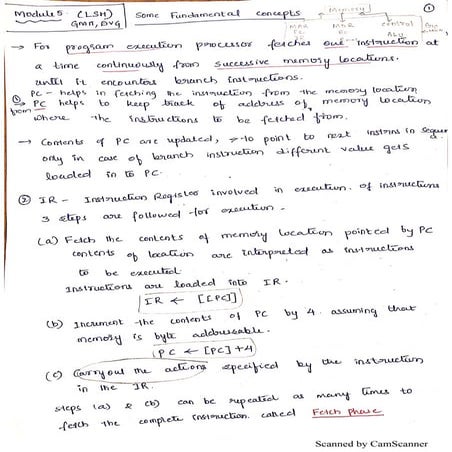 Module 5 (LSH) Some Fundamental concepts
GMN, DVG
①
Memory
MAR PC IR
MDR
control
ALU
→ For program execution processor fetches one instruction at
a time continuously from successive memory locations.
until it encounters branch instructions.
① PC - helps in fetching the instruction from the memory location
from PC helps to keep track of address of, memory location
where the instructions to be fetched from.
→ Contents of PC are updated, → to point to next instrns in sequen
only in case of branch instruction different value gets
loaded in to PC.
② IR - Instruction Register involved in execution of instructions
3 steps are followed for execution.
(a) Fetch the contents of memory location pointed by PC
contents of location are interpreted as instructions
to be executed
Instructions are loaded into IR.
IR ← [[PC]]
(b) Increment the contents of PC by 4. assuming that
memory is byte addressable.
PC ← [PC]+4
(c) Carryout the actions specified by the instruction
in the IR.
steps (a) & (b) can be repeated as many times to
fetch the complete instruction. called Fetch phase
Scanned by CamScanner